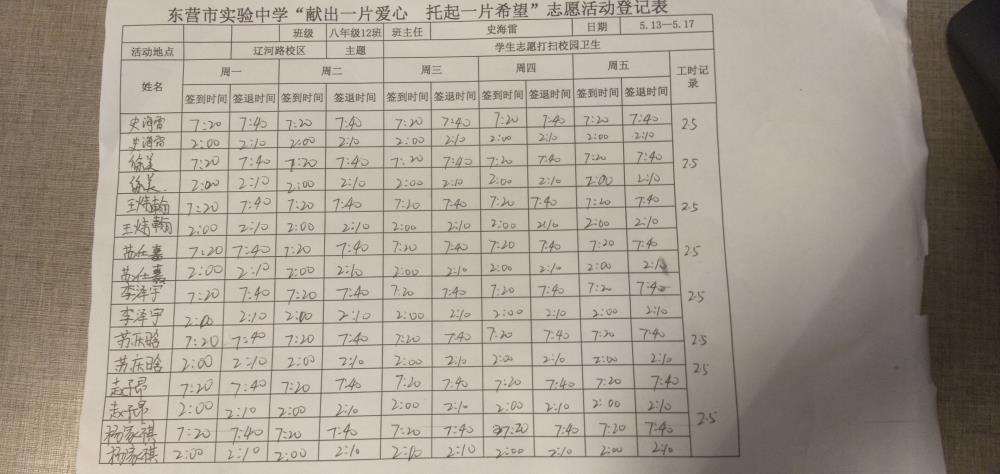 东营市实验中学“献出一片爱心 托起一片希望”志愿活动登记表
班级 八年级12班 班主任 史海雷 日期 5.13—5.17
活动地点 辽河路校区 主题 学生志愿打扫校园卫生
姓名 周一 周二 周三 周四 周五 工时记录
签到时间 签退时间 签到时间 签退时间 签到时间 签退时间 签到时间 签退时间 签到时间 签退时间
史海雷 7:20 7:40 7:20 7:40 7:20 7:40 7:20 7:40 7:20 7:40 2.5
史海雷 2:00 2:10 2:00 2:10 2:00 2:10 2:00 2:10 2:00 2:10
徐美 7:20 7:40 7:20 7:40 7:20 7:40 7:20 7:40 7:20 7:40 2.5
徐美 2:00 2:10 2:00 2:10 2:00 2:10 2:00 2:10 2:00 2:10
王炜翰 7:20 7:40 7:20 7:40 7:20 7:40 7:20 7:40 7:20 7:40 2.5
王炜翰 2:00 2:10 2:00 2:10 2:00 2:10 2:00 2:10 2:00 2:10
7:20 7:40 7:20 7:40 7:20 7:40 7:20 7:40 7:20 7:40 2.5
2:00 2:10 2:00 2:10 2:00 2:10 2:00 2:10 2:00 2:10
李泽宇 7:20 7:40 7:20 7:40 7:20 7:40 7:20 7:40 7:20 7:40 2.5
李泽宇 2:00 2:10 2:00 2:10 2:00 2:10 2:00 2:10 2:00 2:10
苏庆晗 7:20 7:40 7:20 7:40 7:20 7:40 7:20 7:40 7:20 7:40 2.5
苏庆晗 2:00 2:10 2:00 2:10 2:00 2:10 2:00 2:10 2:00 2:10 2.5
7:20 7:40 7:20 7:40 7:20 7:40 7:20 7:40 7:20 7:40
2:00 2:10 2:00 2:10 2:00 2:10 2:00 2:10 2:00 2:10
杨家祺 7:20 7:40 7:20 7:40 7:20 7:40 7:20 7:40 7:20 7:40 2.5
杨家祺 2:00 2:10 2:00 2:10 2:10 2:10 2:00 2:10 2:00 2:10